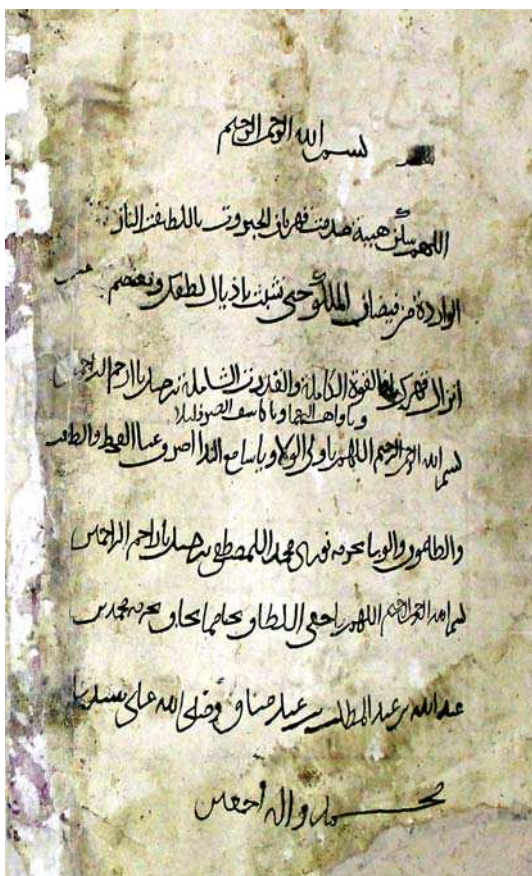 بسم الله الرحمن الرحيم
اللهم سكن هيبة صدمت قهرمان الجبروت باللطيفة الناز
الواردة من فيضان الملكوت حتى نشبث باذيال لطفك ونعتصم
انزال قهرك القوة الكاملة والقدرت الشاملة برحمتك يا ارحم الراحمين
ويا كاشف الضر و البلا
بسم الله الرحمن الرحيم اللهم يا ولي الولا ويا سامع الندا اصرف عنا القحط والطاعون
والطاعون والوبا بحرمة نور محمد المصطفى برحمتك يا ارحم الراحمين
بسم الله الرحمن الرحيم اللهم يا خفي الالطاف نجنا مما نخاف بحرمة محمد بن
عبد الله بن عبد المطلب بن عبد مناف وصلى الله على سيدنا
محمد واله اجمعين